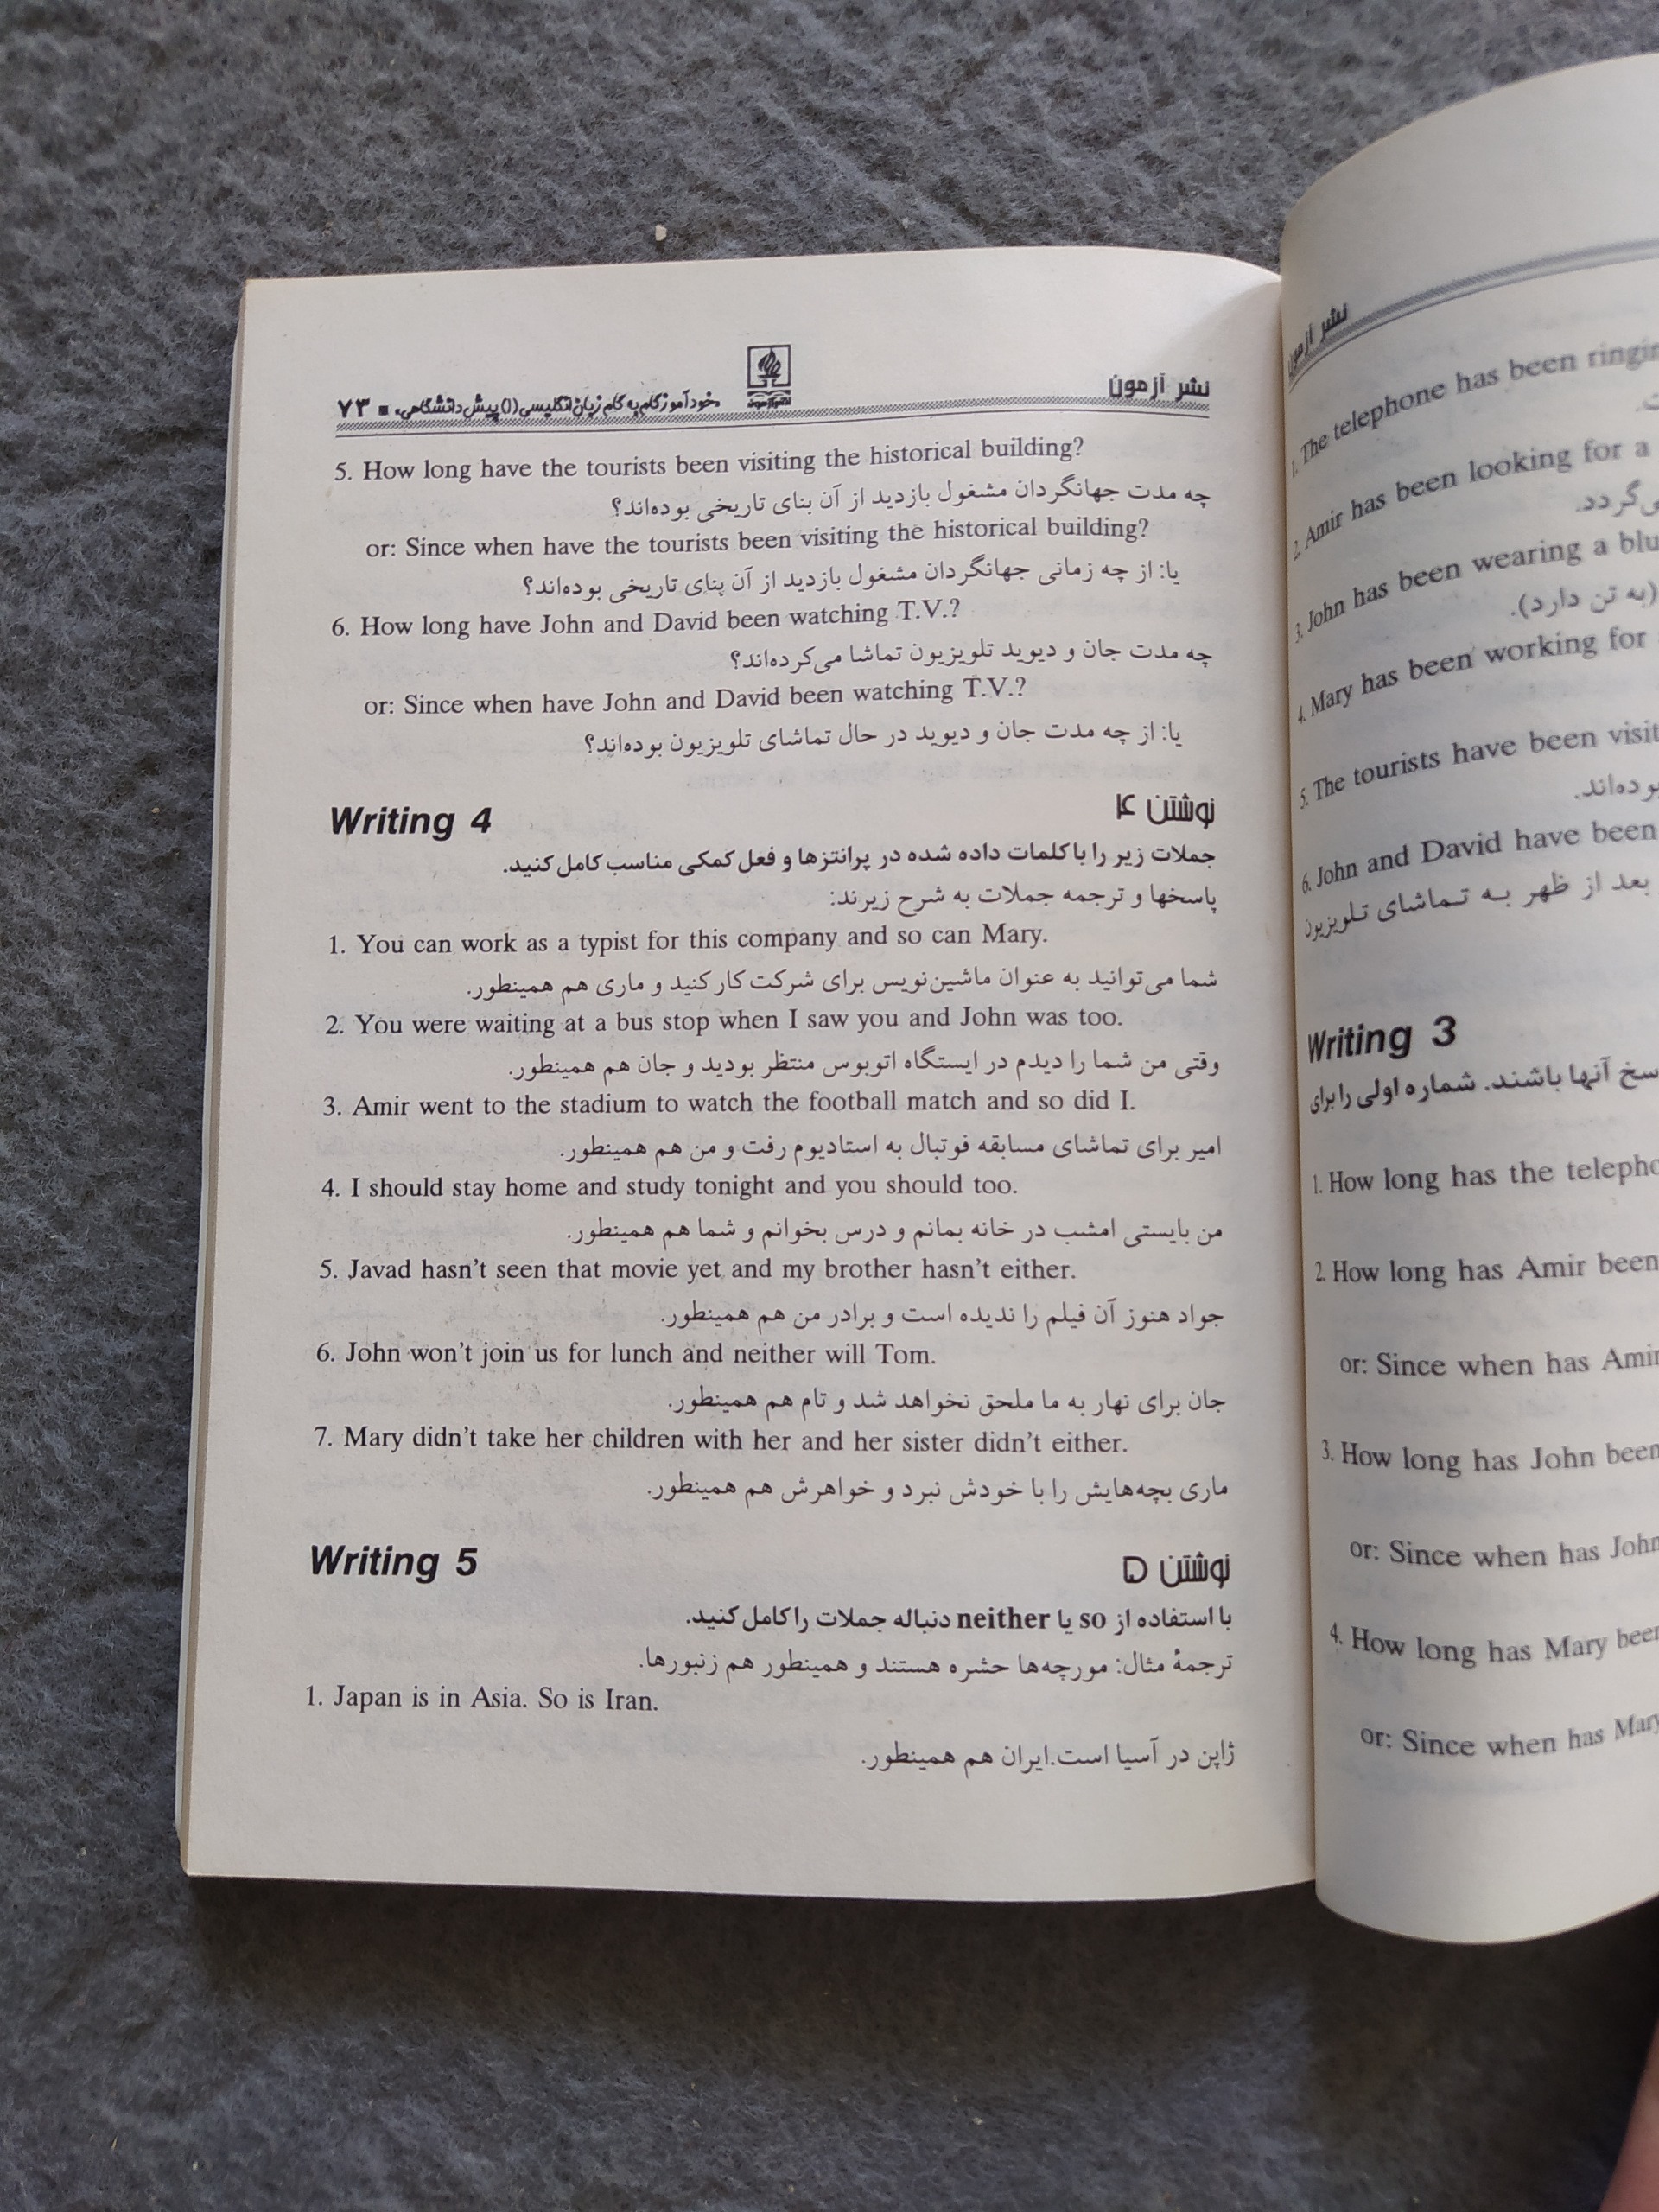 نشر آزمون
«خودآموز گام به گام زبان انگلیسی (۱) پیش دانشگاهی» ■ ۷۳
5. How long have the tourists been visiting the historical building?
چه مدت جهانگردان مشغول بازدید از آن بنای تاریخی بوده‌اند؟
or: Since when have the tourists been visiting the historical building?
یا: از چه زمانی جهانگردان مشغول بازدید از آن بنای تاریخی بوده‌اند؟
6. How long have John and David been watching T.V.?
چه مدت جان و دیوید تلویزیون تماشا می‌کرده‌اند؟
or: Since when have John and David been watching T.V.?
یا: از چه مدت جان و دیوید در حال تماشای تلویزیون بوده‌اند؟
Writing 4
نوشتن ۴
جملات زیر را با کلمات داده شده در پرانتزها و فعل کمکی مناسب کامل کنید.
پاسخها و ترجمه جملات به شرح زیرند:
1. You can work as a typist for this company and so can Mary.
شما می‌توانید به عنوان ماشین‌نویس برای شرکت کار کنید و ماری هم همینطور.
2. You were waiting at a bus stop when I saw you and John was too.
وقتی من شما را دیدم در ایستگاه اتوبوس منتظر بودید و جان هم همینطور.
3. Amir went to the stadium to watch the football match and so did I.
امیر برای تماشای مسابقه فوتبال به استادیوم رفت و من هم همینطور.
4. I should stay home and study tonight and you should too.
من بایستی امشب در خانه بمانم و درس بخوانم و شما هم همینطور.
5. Javad hasn't seen that movie yet and my brother hasn't either.
جواد هنوز آن فیلم را ندیده است و برادر من هم همینطور.
6. John won't join us for lunch and neither will Tom.
جان برای نهار به ما ملحق نخواهد شد و تام هم همینطور.
7. Mary didn't take her children with her and her sister didn't either.
ماری بچه‌هایش را با خودش نبرد و خواهرش هم همینطور.
Writing 5
نوشتن ۵
با استفاده از so یا neither دنباله جملات را کامل کنید.
ترجمهٔ مثال: مورچه‌ها حشره هستند و همینطور هم زنبورها.
1. Japan is in Asia. So is Iran.
ژاپن در آسیا است.ایران هم همینطور.
نشر آزمون
1. The telephone has been
2. Amir has been looking for a
می‌گردد.
3. John has been wearing a
(به تن دارد).
4. Mary has been working for
5. The tourists have been
بوده‌اند.
6. John and David have been
بعد از ظهر به تماشای تلویزیون
Writing 3
آنها باشند. شماره اولی را برای
1. How long has the
2. How long has Amir been
or: Since when has Amir
3. How long has John been
or: Since when has John
4. How long has Mary been
or: Since when has Mary